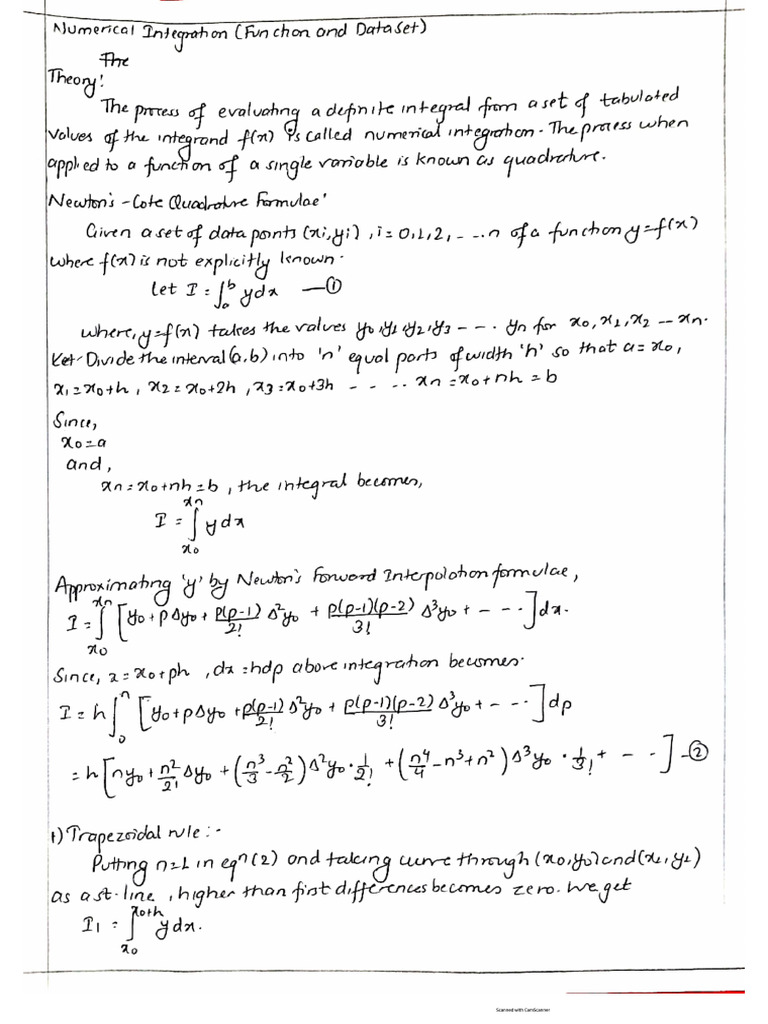 Numerical Integration (Function and Dataset)
The
Theory!
The process of evaluating a definite integral from a set of tabulated
values of the integrand f(x) is called numerical integration. The process when
applied to a function of a single variable is known as quadrature.
Newton's - Cote Quadrature Formulae'
Given a set of data points (xi, yi), i = 0,1,2, - ... n of a function y=f(x)
where f(x) is not explicitly known.
let I = ∫ₐᵇ ydx —①
where, y=f(x) takes the values y₀, y₁, y₂, y₃ - - - . yn for x₀, x₁, x₂ --- xn.
Let Divide the interval (a,b) into 'n' equal parts of width 'h' so that a = x₀,
x₁ = x₀+h, x₂ = x₀+2h, x₃ = x₀+3h - - . .. xn = x₀+nh = b
Since,
x₀ = a
and,
xn = x₀+nh = b, the integral becomes,
I = ∫_{x₀}^{xn} ydx
Approximating 'y' by Newton's Forward Interpolation formulae,
I = ∫_{x₀}^{xn} [y₀ + pΔy₀ + p(p-1)/2! Δ²y₀ + p(p-1)(p-2)/3! Δ³y₀ + - - . ] dx.
Since, x = x₀+ph, dx = hdp above integration becomes.
I = h∫₀ⁿ [y₀ + pΔy₀ + p(p-1)/2! Δ²y₀ + p(p-1)(p-2)/3! Δ³y₀ + - - . ] dp
= h[ny₀ + n²/2! Δy₀ + (n³/3 - n²/2) Δ²y₀ · 1/2! + (n⁴/4 - n³ + n²) Δ³y₀ · 1/3! + - - . ] -②
1) Trapezoidal rule :-
Putting n=1 in eqⁿ (2) and taking curve through (x₀, y₀) and (x₁, y₁)
as a st. line, higher than first differences becomes zero. We get
I₁ = ∫_{x₀}^{x₀+h} ydx.
Scanned with CamScanner